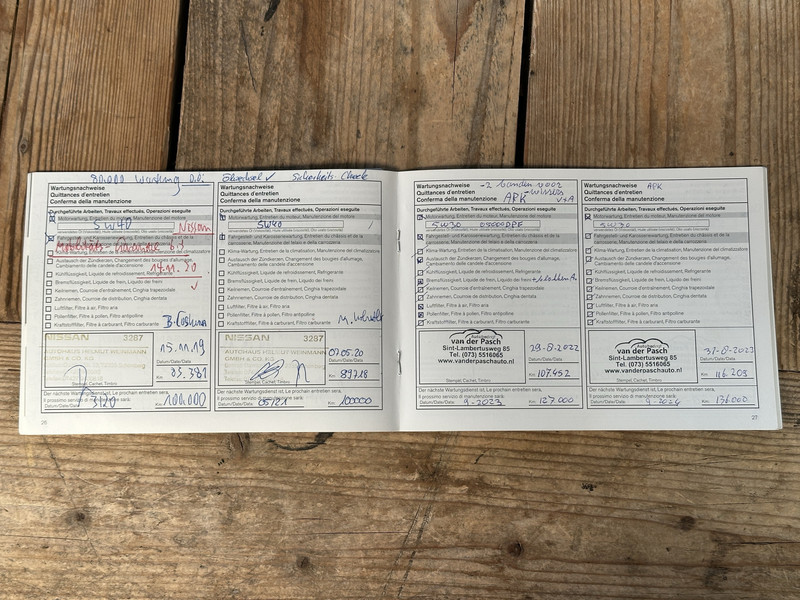 80.000 Wartung
Ölwechsel ✓ Sicherheits-Check
Wartungsnachweise
Quittances d'entretien
Conferma della manutenzione
Durchgeführte Arbeiten, Travaux effectués, Operazioni eseguite
Motorwartung, Entretien du moteur, Manutenzione del motore
5W40
Nissan
Mobilitäts-
14.11.20
Klima-Wartung, Entretien de la climatisation, Manutenzione
Austausch der Zündkerzen, Changement des bougies d'allumage,
Cambiamento delle candele d'accensione
Kühlflüssigkeit, Liquide de refroidissement, Refrigerante
Bremsflüssigkeit, Liquide de frein, Liquido dei freni
Keilriemen, Courroie d'entraînement, Cinghia trapezoidale
Zahnriemen, Courroie de distribution, Cinghia dentata
Luftfilter, Filtre à air, Filtro aria
Pollenfilter, Filtre à pollen, Filtro antipolline
Kraftstofffilter, Filtre à carburant, Filtro carburante
NISSAN 3287
AUTOHAUS HELMUT
GMBH & CO. KG
Stempel, Cachet, Timbro
15.11.19
Datum/Date/Data
Km 83.381
Der nächste Wartungsdienst ist, Le prochain entretien sera,
Il prossimo servizio di manutenzione sarà:
Datum/Date/Data
Km 100.000
26
Wartungsnachweise
Quittances d'entretien
Conferma della manutenzione
Durchgeführte Arbeiten, Travaux effectués, Operazioni eseguite
Motorwartung, Entretien du moteur, Manutenzione del motore
5W40
Fahrgestell- und Karosseriewartung, Entretien du châssis et de la
carrosserie, Manutenzione del telaio e della carrozzeria
Klima-Wartung, Entretien de la climatisation, Manutenzione
Austausch der Zündkerzen, Changement des bougies d'allumage,
Cambiamento delle candele d'accensione
Kühlflüssigkeit, Liquide de refroidissement, Refrigerante
Bremsflüssigkeit, Liquide de frein, Liquido dei freni
Keilriemen, Courroie d'entraînement, Cinghia trapezoidale
Zahnriemen, Courroie de distribution, Cinghia dentata
Luftfilter, Filtre à air, Filtro aria
Pollenfilter, Filtre à pollen, Filtro antipolline
Kraftstofffilter, Filtre à carburant, Filtro carburante
NISSAN 3287
AUTOHAUS HELMUT
GMBH & CO. KG
Stempel, Cachet, Timbro
07.05.20
Datum/Date/Data
Km 89718
Der nächste Wartungsdienst ist, Le prochain entretien sera,
Il prossimo servizio di manutenzione sarà:
Datum/Date/Data 05/21
Km 100000
Wartungsnachweise
Quittances d'entretien
Conferma della manutenzione
-2 banden voor
-wissers
APK
Durchgeführte Arbeiten, Travaux effectués, Operazioni eseguite
Motorwartung, Entretien du moteur, Manutenzione del motore
5W30
Fahrgestell- und Karosseriewartung, Entretien du châssis et de la
carrosserie, Manutenzione del telaio e della carrozzeria
Klima-Wartung, Entretien de la climatisation, Manutenzione
Austausch der Zündkerzen, Changement des bougies d'allumage,
Cambiamento delle candele d'accensione
Kühlflüssigkeit, Liquide de refroidissement, Refrigerante
Bremsflüssigkeit, Liquide de frein, Liquido dei freni
Keilriemen, Courroie d'entraînement, Cinghia trapezoidale
Zahnriemen, Courroie de distribution, Cinghia dentata
Luftfilter, Filtre à air, Filtro aria
Pollenfilter, Filtre à pollen, Filtro antipolline
Kraftstofffilter, Filtre à carburant, Filtro carburante
Autobedrijf
van der Pasch
Sint-Lambertusweg 85
Tel. (073) 5516065
www.vanderpaschauto.nl
Stempel, Cachet, Timbro
29-8-2022
Datum/Date/Data
Km 107.452
Der nächste Wartungsdienst ist, Le prochain entretien sera,
Il prossimo servizio di manutenzione sarà:
Datum/Date/Data 9-2023
Km 127.000
Wartungsnachweise
Quittances d'entretien
Conferma della manutenzione
APK
Durchgeführte Arbeiten, Travaux effectués, Operazioni eseguite
Motorwartung, Entretien du moteur, Manutenzione del motore
5W30
Fahrgestell- und Karosseriewartung, Entretien du châssis et de la
carrosserie, Manutenzione del telaio e della carrozzeria
Klima-Wartung, Entretien de la climatisation, Manutenzione
Austausch der Zündkerzen, Changement des bougies d'allumage,
Cambiamento delle candele d'accensione
Kühlflüssigkeit, Liquide de refroidissement, Refrigerante
Bremsflüssigkeit, Liquide de frein, Liquido dei freni
Keilriemen, Courroie d'entraînement, Cinghia trapezoidale
Zahnriemen, Courroie de distribution, Cinghia dentata
Luftfilter, Filtre à air, Filtro aria
Pollenfilter, Filtre à pollen, Filtro antipolline
Kraftstofffilter, Filtre à carburant, Filtro carburante
Autobedrijf
van der Pasch
Sint-Lambertusweg 85
Tel. (073) 5516065
www.vanderpaschauto.nl
Stempel, Cachet, Timbro
31-8-2023
Datum/Date/Data
Km 116.203
Der nächste Wartungsdienst ist, Le prochain entretien sera,
Il prossimo servizio di manutenzione sarà:
Datum/Date/Data 9-2024
Km 136.000
27